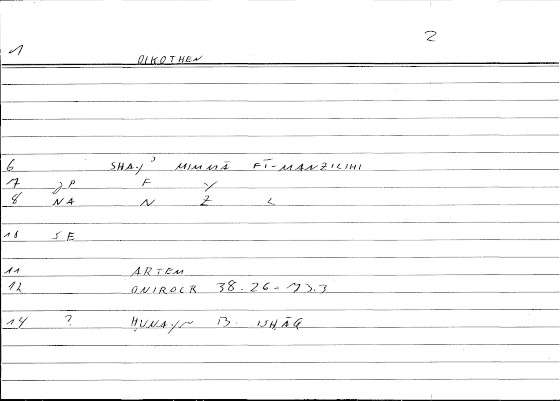 2
1 OIKOTHEN
6 SHAYʾ MIMMĀ FĪ-MANZILIHI
7 JP F Y
8 NA N Z L
10 SE
11 ARTEM
12 ONIROCR 38.26-
14 ? ḤUNAYN B. ISḤĀQ